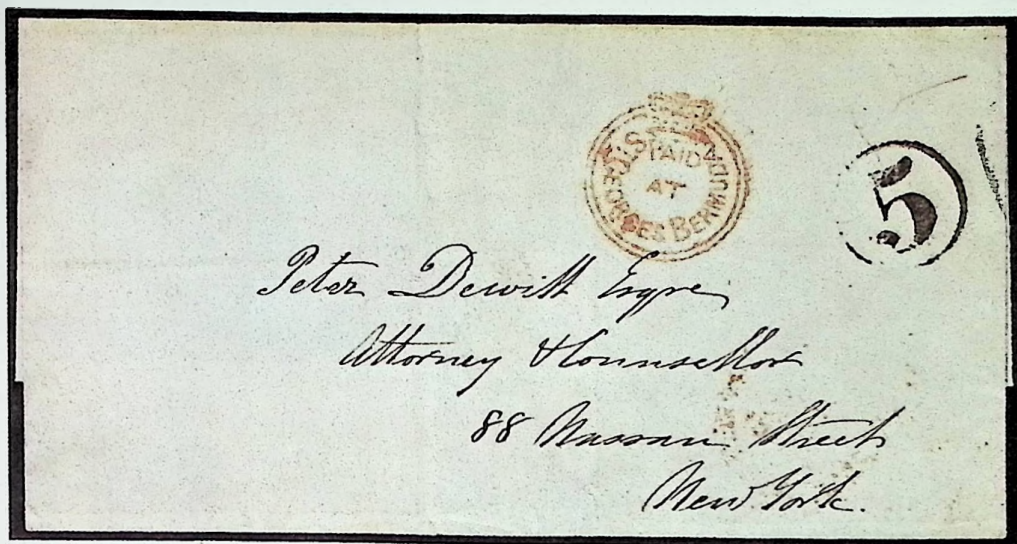 PAID
AT
ST. GEORGES BERMUDA
5
Peter Dewitt Esqre
Attorney & Counsellor
88 Nassau Street
New York.